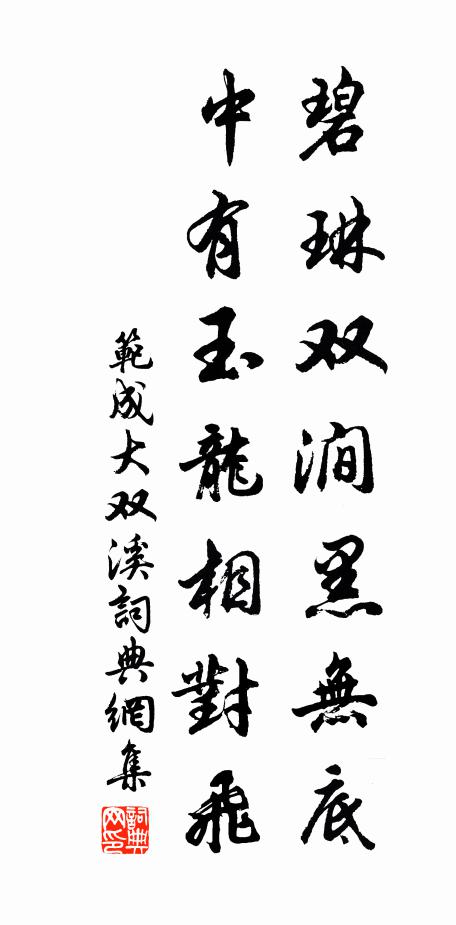 碧琳双澗黑無底
中有玉龍相對飛
範成大双溪詞典網集
詞典
网印